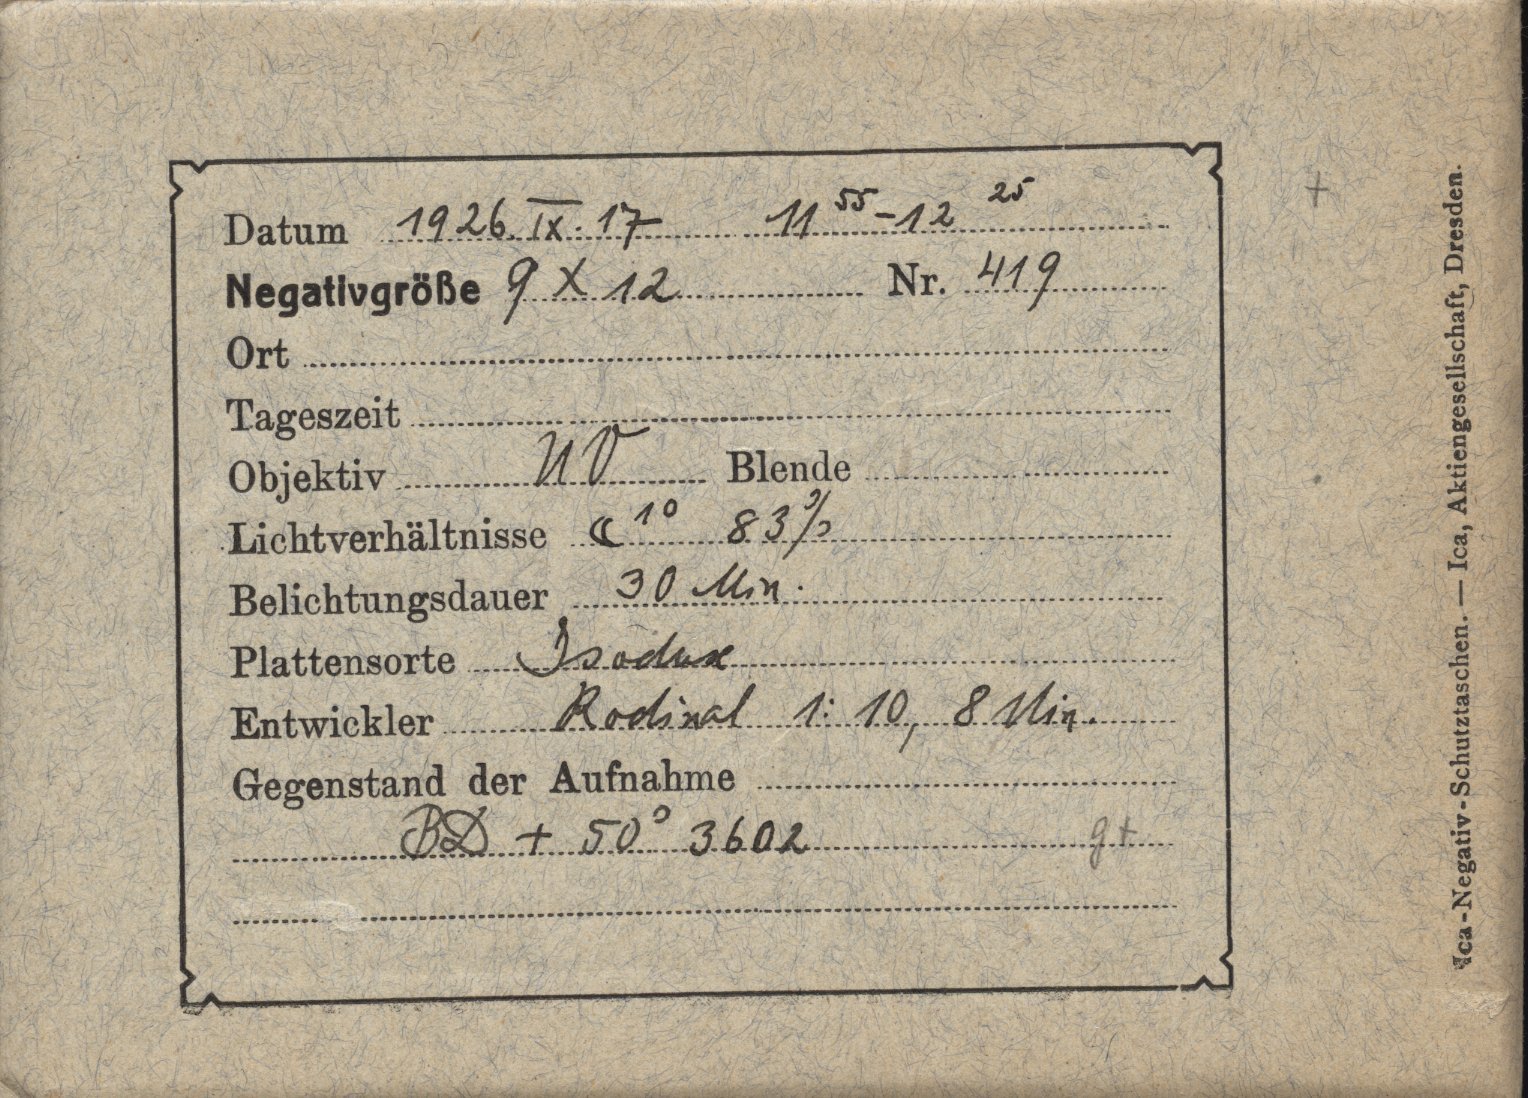 Datum 1926. IX. 17 11 55 - 12 25
Negativgröße 9 X 12 Nr. 419
Ort
Tageszeit
Objektiv UV Blende
Lichtverhältnisse ☾ 10 83%
Belichtungsdauer 30 Min.
Plattensorte Isodux
Entwickler Rodinal 1:10, 8 Min.
Gegenstand der Aufnahme
BD + 50° 3602 g+
+
Ica-Negativ-Schutztaschen. — Ica, Aktiengesellschaft, Dresden.